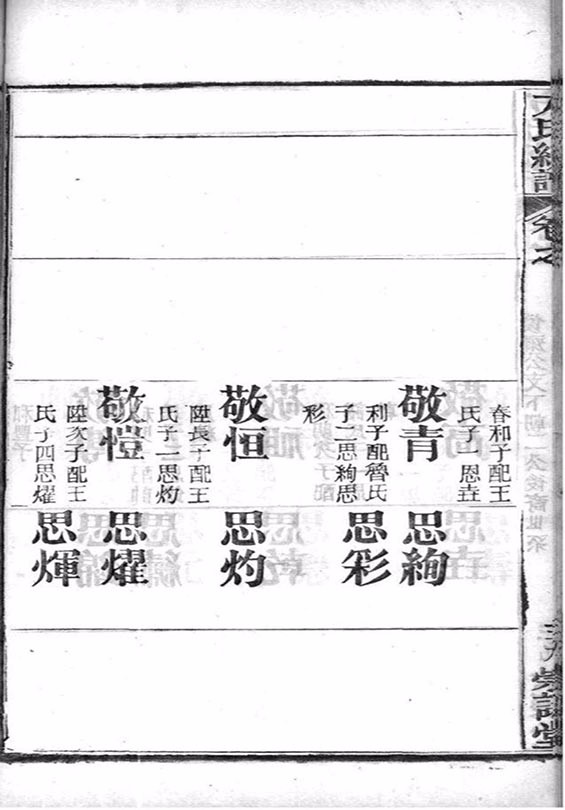 春和子配王
氏子一思垚
敬青
利子配魯氏
子二思絢思
彩
敬恒
陞長子配王
氏子一思灼
敬愷
陞次子配王
氏子四思燿
思絢
思彩
思灼
思燿
思煇
氏續譜
卷之
三九
崇誼堂